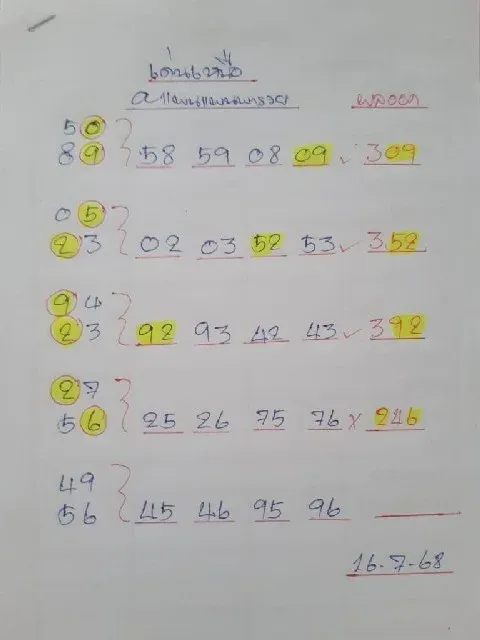 เด่นเหนือ
ผลออก
50
89 58 59 08 09 ✓ 309
05
23 02 03 52 53 ✓ 352
94
23 92 93 42 43 ✓ 392
27
56 25 26 75 76 x 246
49
56 45 46 95 96
16-7-68